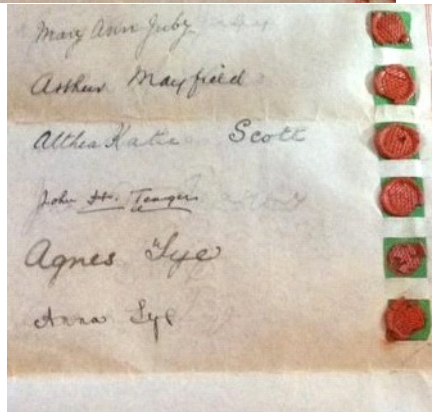 Mary Ann Juby
Arthur Mayfield
Althea Katie Scott
John H. Teager
Agnes Lye
Anna Lye